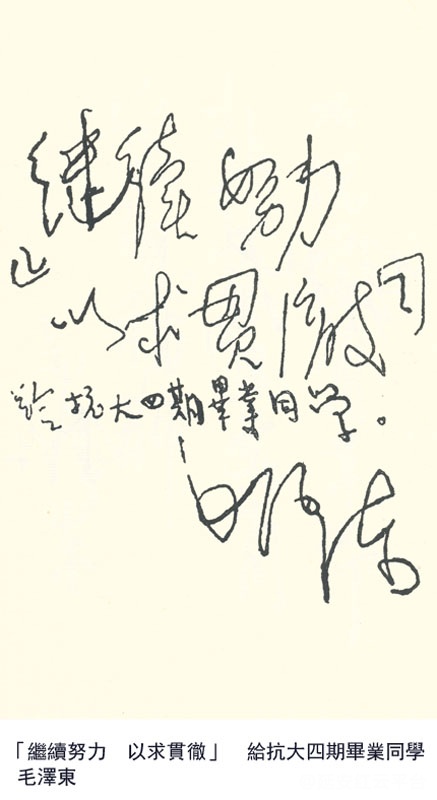 「继續努力
以求貫徹」
给抗大四期畢業同学。
毛澤東
「繼續努力 以求貫徹」 給抗大四期畢業同學
毛澤東